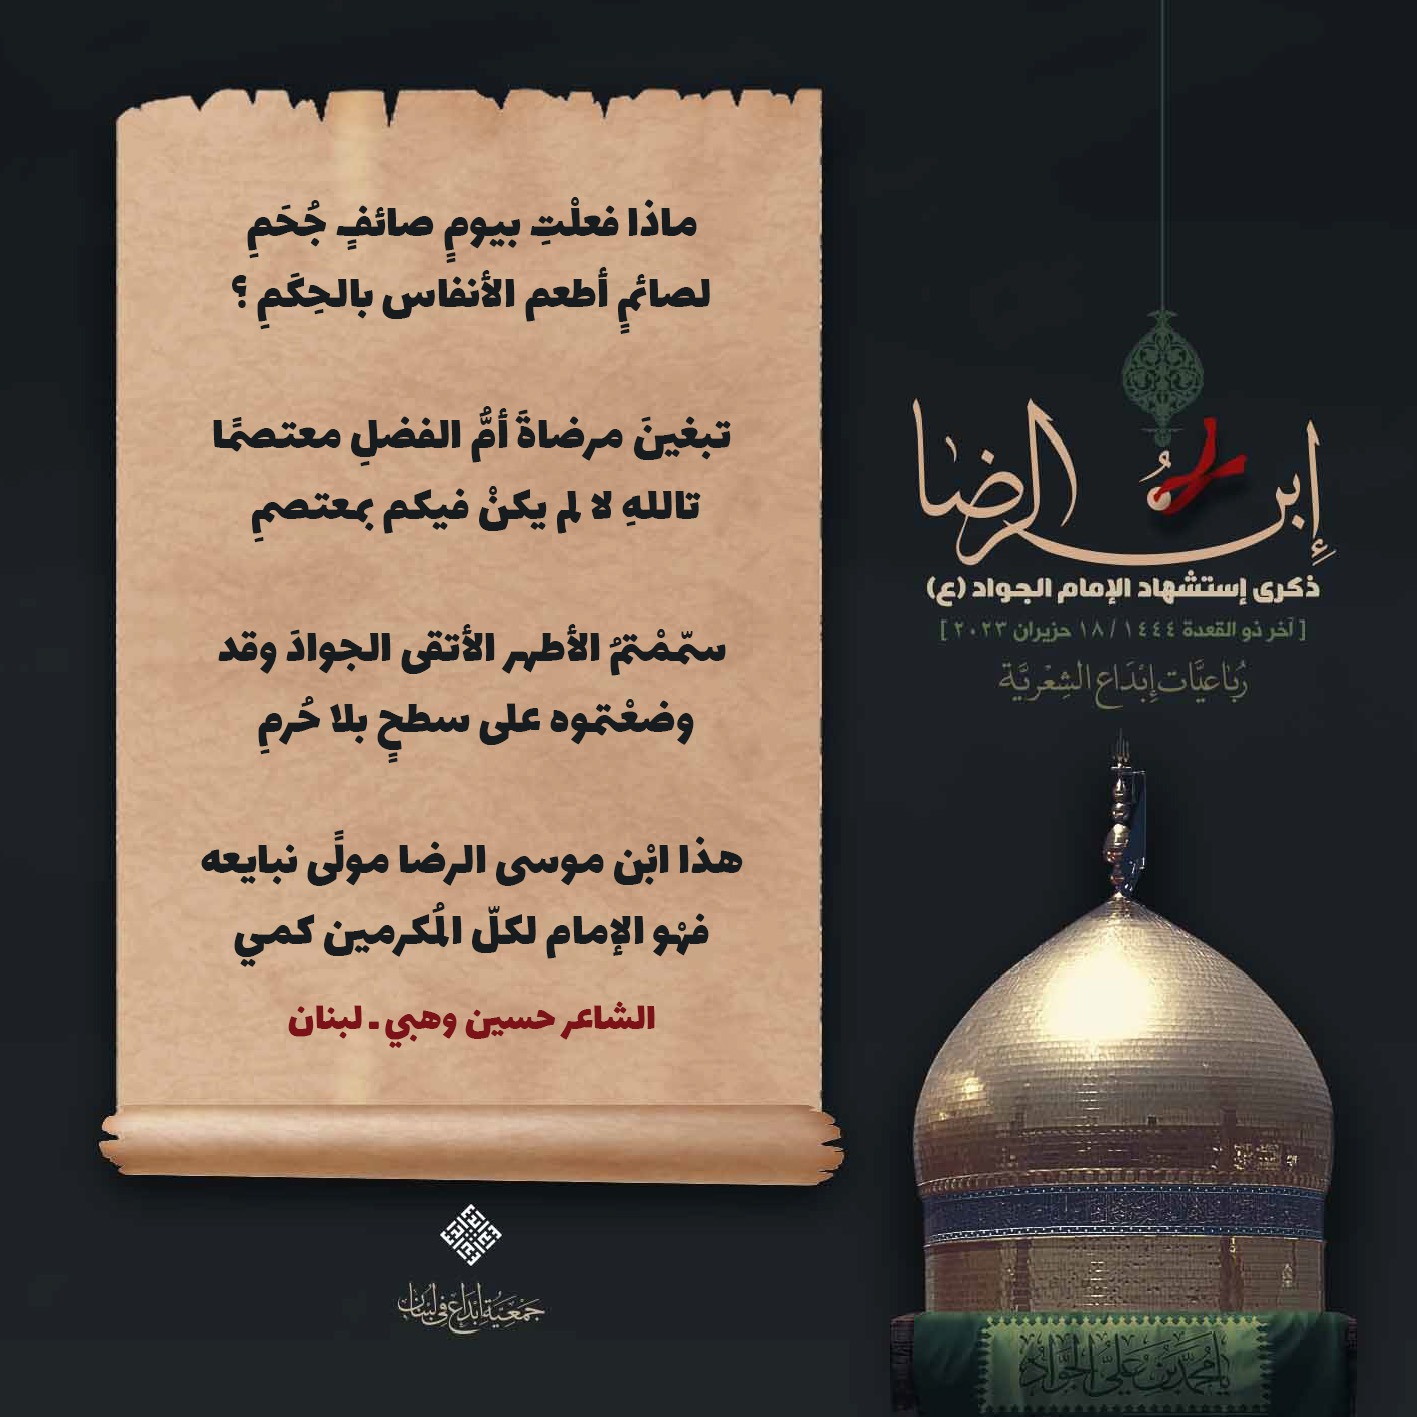 ماذا فعلْتِ بيومٍ صائفٍ جُحَمِ
لصائمٍ أطعم الأنفاس بالحِكَمِ ؟
تبغينَ مرضاةَ أمُّ الفضلِ معتصمًا
تاللهِ لا لم يكنْ فيكم بمعتصمِ
سمّمْتمُ الأطهر الأتقى الجوادَ وقد
وضعْتموه على سطحٍ بلا حُرمِ
هذا ابْن موسى الرضا مولًى نبايعه
فهْو الإمام لكلّ المُكرمين كمي
الشاعر حسين وهبي ـ لبنان
إبن الرضا
ذكرى إستشهاد الإمام الجواد (ع)
[ آخر ذو القعدة ١٤٤٤ / ١٨ حزيران ٢٠٢٣ ]
رُبَاعيَّات إِبْدَاع الشِعْريَّة
يا محمد بن علي الجواد
جمعية إبداع في لبنان